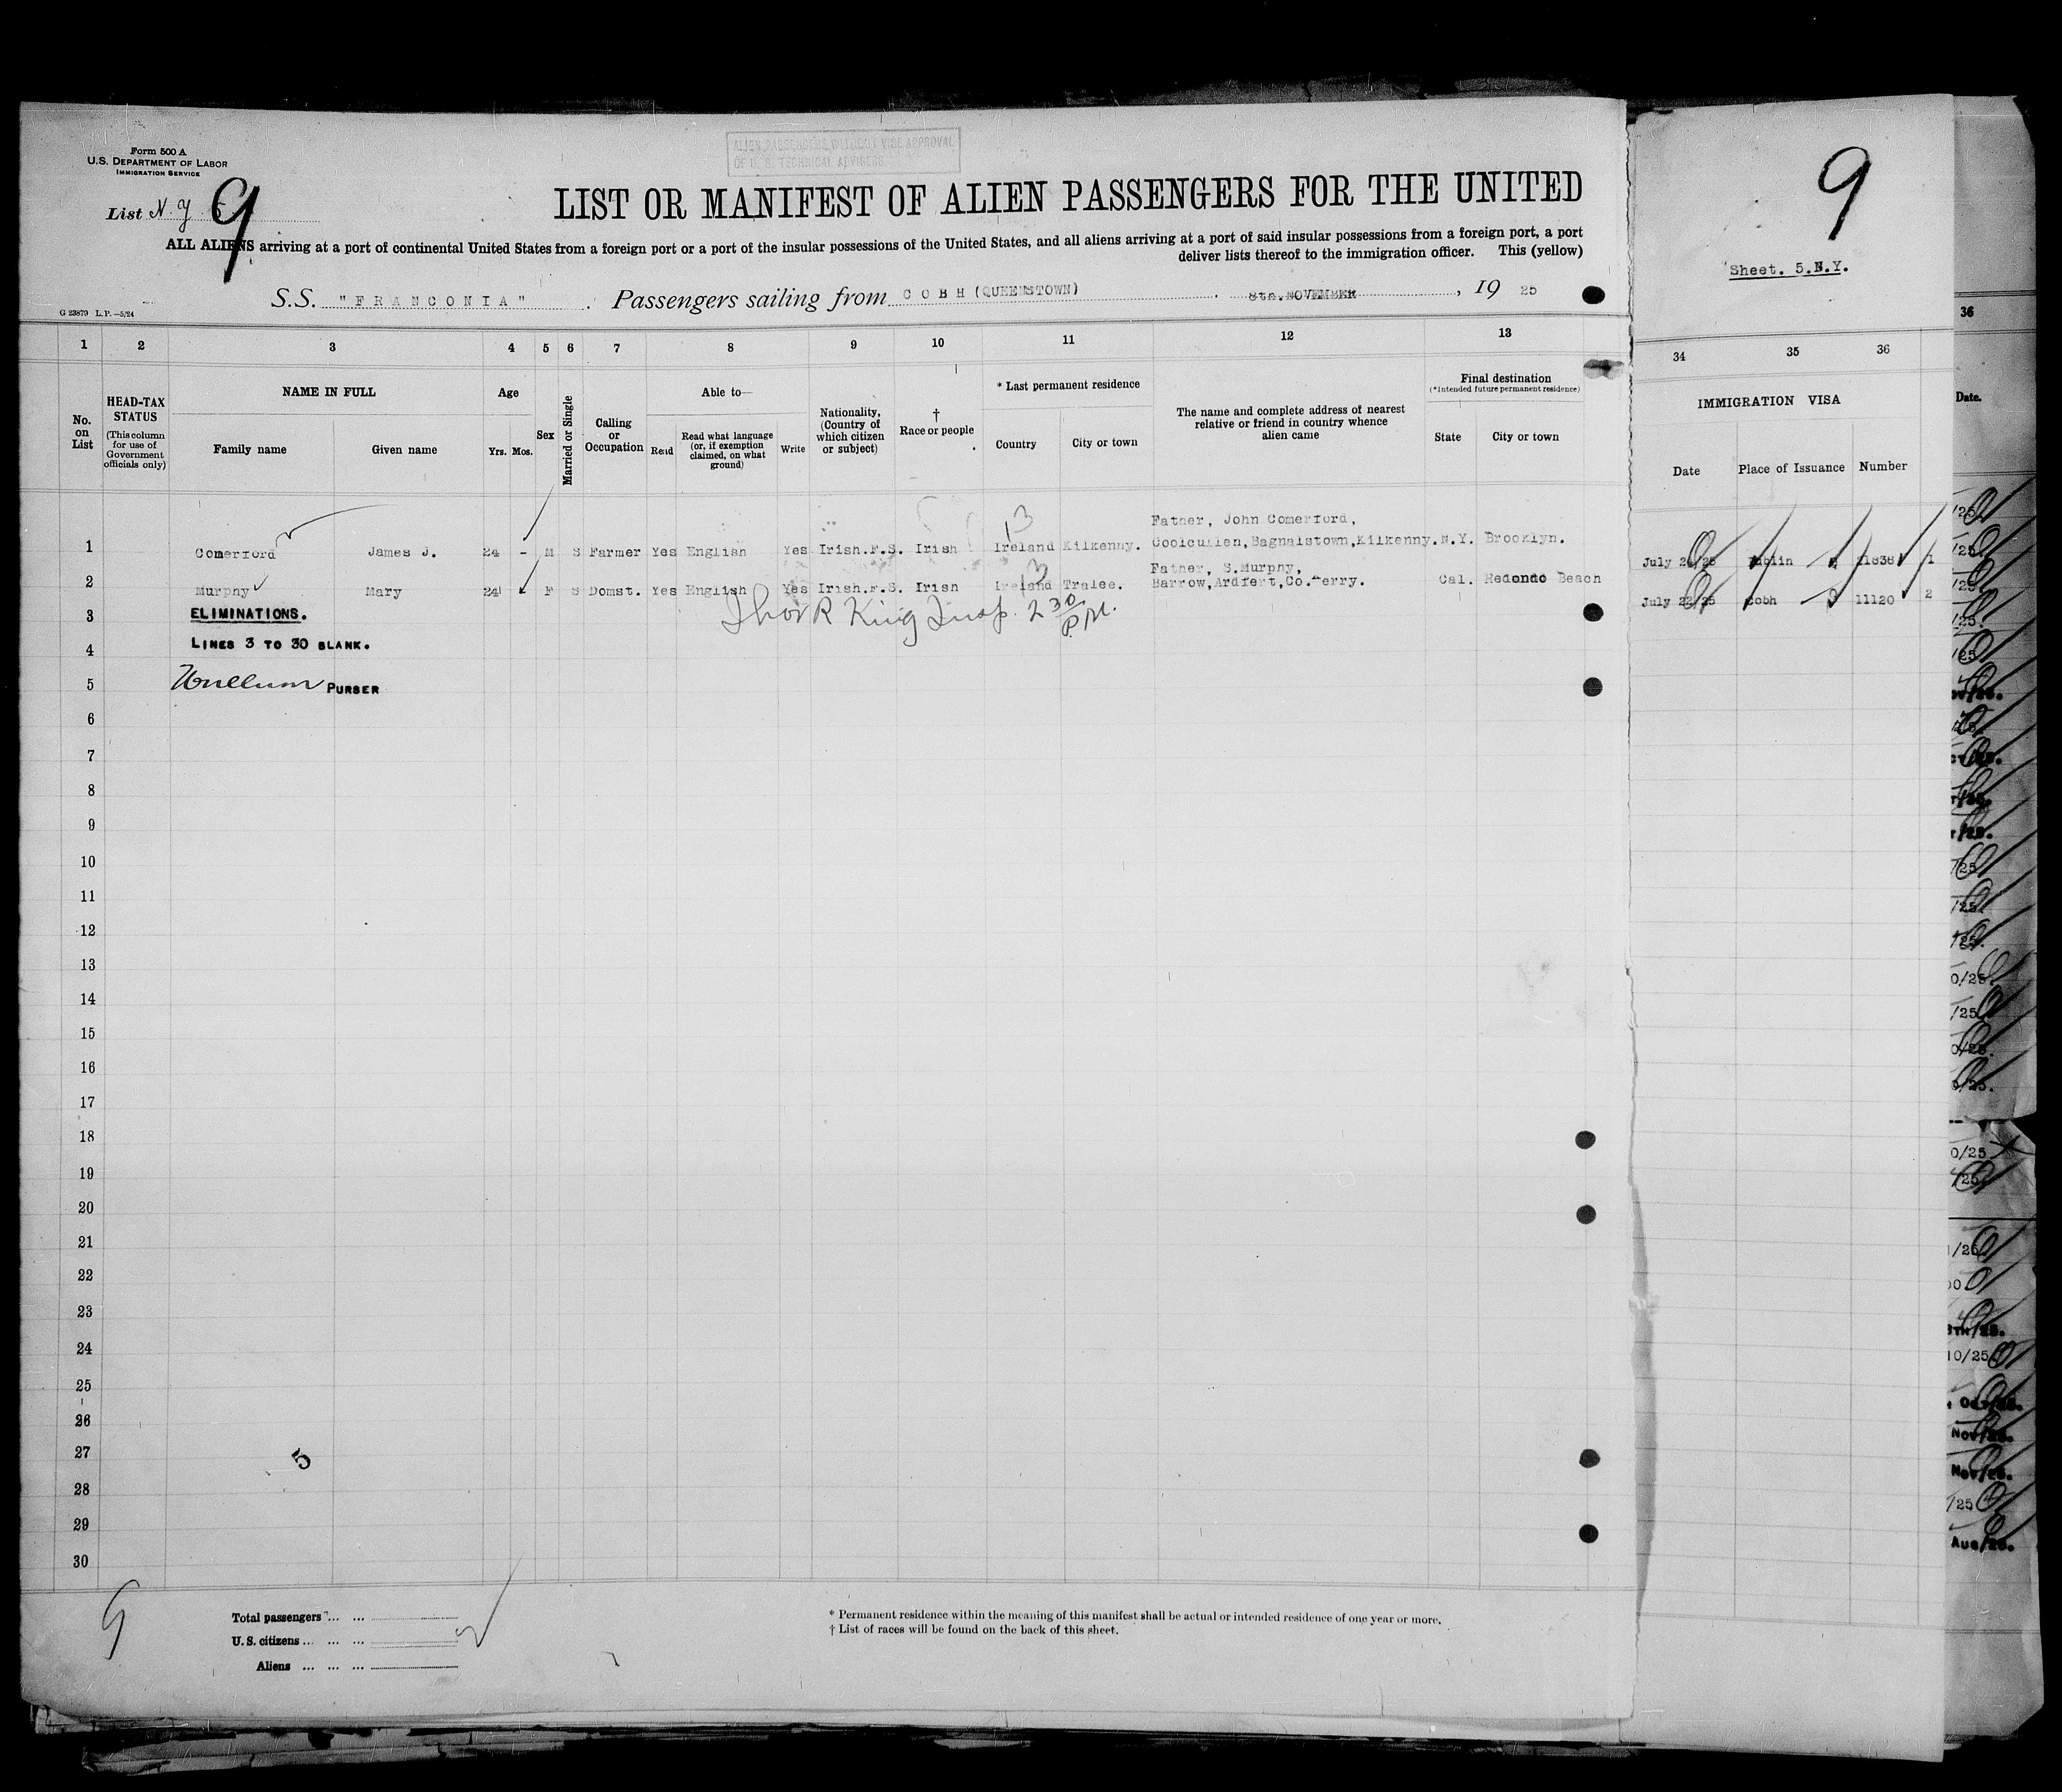 ALIEN PASSENGERS WITHOUT VISE APPROVAL
OF U. S. TECHNICAL ADVISERS
Form 500 A
U.S. DEPARTMENT OF LABOR
IMMIGRATION SERVICE
List N.Y. 9
LIST OR MANIFEST OF ALIEN PASSENGERS FOR THE UNITED
ALL ALIENS arriving at a port of continental United States from a foreign port or a port of the insular possessions of the United States, and all aliens arriving at a port of said insular possessions from a foreign port, a port
deliver lists thereof to the immigration officer. This (yellow)
S.S. "FRANCONIA" Passengers sailing from COBH (QUEENSTOWN) 8th. NOVEMBER, 19 25
G 23879 L.P.—5/24
1 2 3 4 5 6 7 8 9 10 11 12 13
No. on List
HEAD-TAX STATUS
(This column for use of Government officials only)
NAME IN FULL
Family name Given name
Age
Yrs. Mos.
Sex
Married or Single
Calling or Occupation
Able to—
Read Read what language (or, if exemption claimed, on what ground) Write
Nationality, (Country of which citizen or subject)
† Race or people
* Last permanent residence
Country City or town
The name and complete address of nearest relative or friend in country whence alien came
Final destination
(*Intended future permanent residence)
State City or town
Father, John Comerford,
1 Comerford James J. 24 - M S Farmer Yes English Yes Irish.F.S. Irish Ireland Kilkenny. Coolcullen,Bagnalstown,Kilkenny. N.Y. Brooklyn.
Father, S.Murphy,
2 Murphy Mary 24 F S Domst. Yes English Yes Irish.F.S. Irish Ireland Tralee. Barrow,Ardfert,Co.Kerry. Cal. Redondo Beach
13
13
3 ELIMINATIONS.
R King Insp. 2 30 P.M.
4 LINES 3 TO 30 BLANK.
5 PURSER
6
7
8
9
10
11
12
13
14
15
16
17
18
19
20
21
22
23
24
25
26
27
5
28
29
30
9
Total passengers ... ...
U.S. citizens ... ... ...
Aliens ... ... ...
* Permanent residence within the meaning of this manifest shall be actual or intended residence of one year or more.
† List of races will be found on the back of this sheet.
9
Sheet. 5.N.Y.
34 35 36
IMMIGRATION VISA
Date Place of Issuance Number
July 25 Dublin 11838 1
July 25 Cobh 11120 2
36
Date.